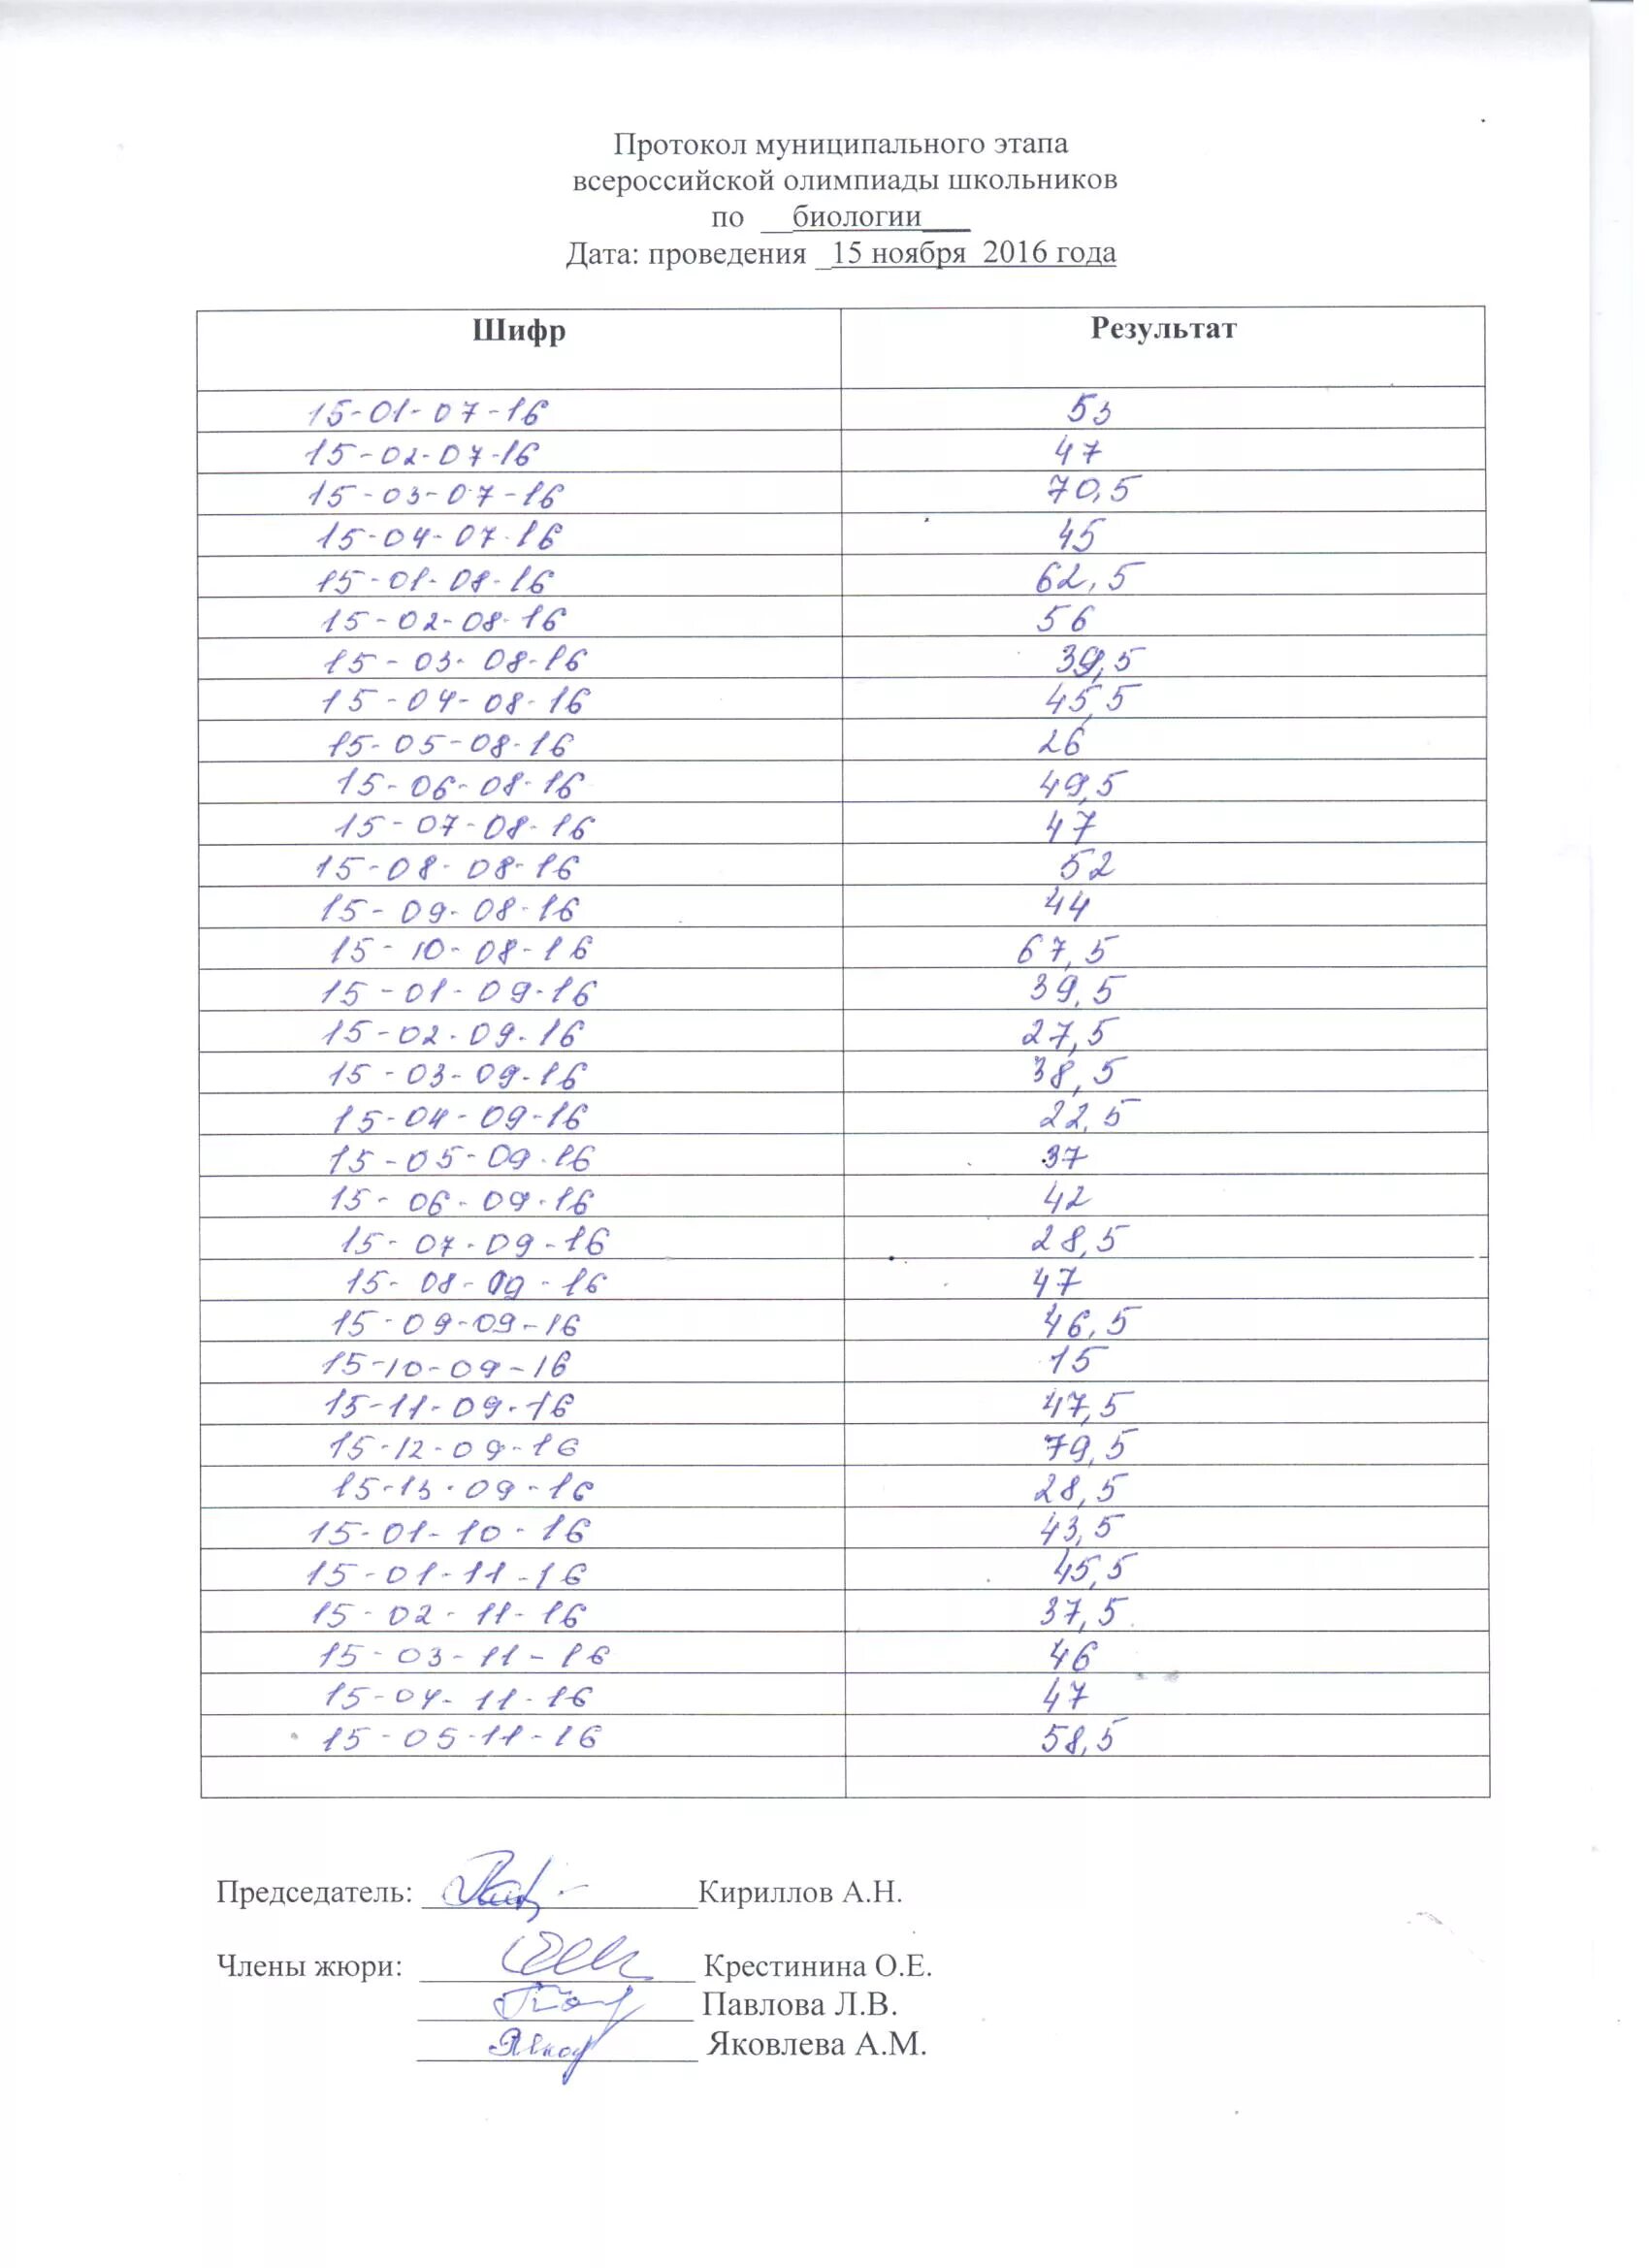 Протокол муниципального этапа
всероссийской олимпиады школьников
по __биологии___
Дата: проведения _15 ноября 2016 года
Шифр Результат
15-01-07-16 53
15-02-07-16 47
15-03-07-16 70,5
15-04-07-16 45
15-01-08-16 62,5
15-02-08-16 56
15-03-08-16 39,5
15-04-08-16 45,5
15-05-08-16 26
15-06-08-16 49,5
15-07-08-16 47
15-08-08-16 52
15-09-08-16 44
15-10-08-16 67,5
15-01-09-16 39,5
15-02-09-16 27,5
15-03-09-16 38,5
15-04-09-16 22,5
15-05-09-16 37
15-06-09-16 42
15-07-09-16 28,5
15-08-09-16 47
15-09-09-16 46,5
15-10-09-16 15
15-11-09-16 47,5
15-12-09-16 79,5
15-13-09-16 28,5
15-01-10-16 43,5
15-01-11-16 45,5
15-02-11-16 37,5
15-03-11-16 46
15-04-11-16 47
15-05-11-16 58,5
Председатель: Кириллов А.Н.
Члены жюри: Крестинина О.Е.
Павлова Л.В.
Яковлева А.М.